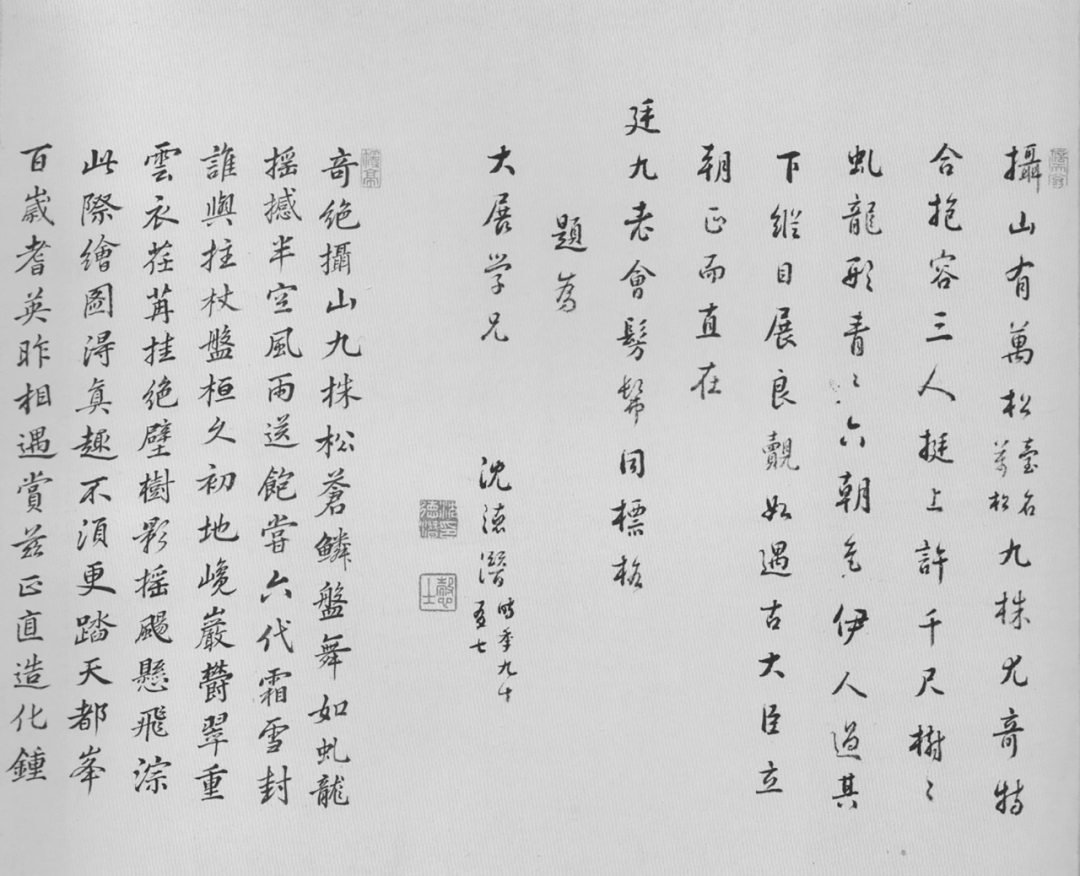 攝山有萬松臺名萬松九株尤奇特
合抱容三人挺上許千尺樹〻
虬龍形青〻六朝色伊人過其
下縱目展良覿如遇古大臣立
朝正而直在
廷九老會髣髴同標格
題為
大展学兄
沈德潛時年九十有七
奇絶攝山九株松蒼鱗盤舞如虬龍
摇撼半空風雨送飽嘗六代霜雪封
誰與拄杖盤桓久初地巉巖欝翠重
雲衣荏苒挂絶壁樹影摇颺懸飛淙
此際繪圖得真趣不須更踏天都峯
百歲耆英昨相遇賞兹正直造化鍾